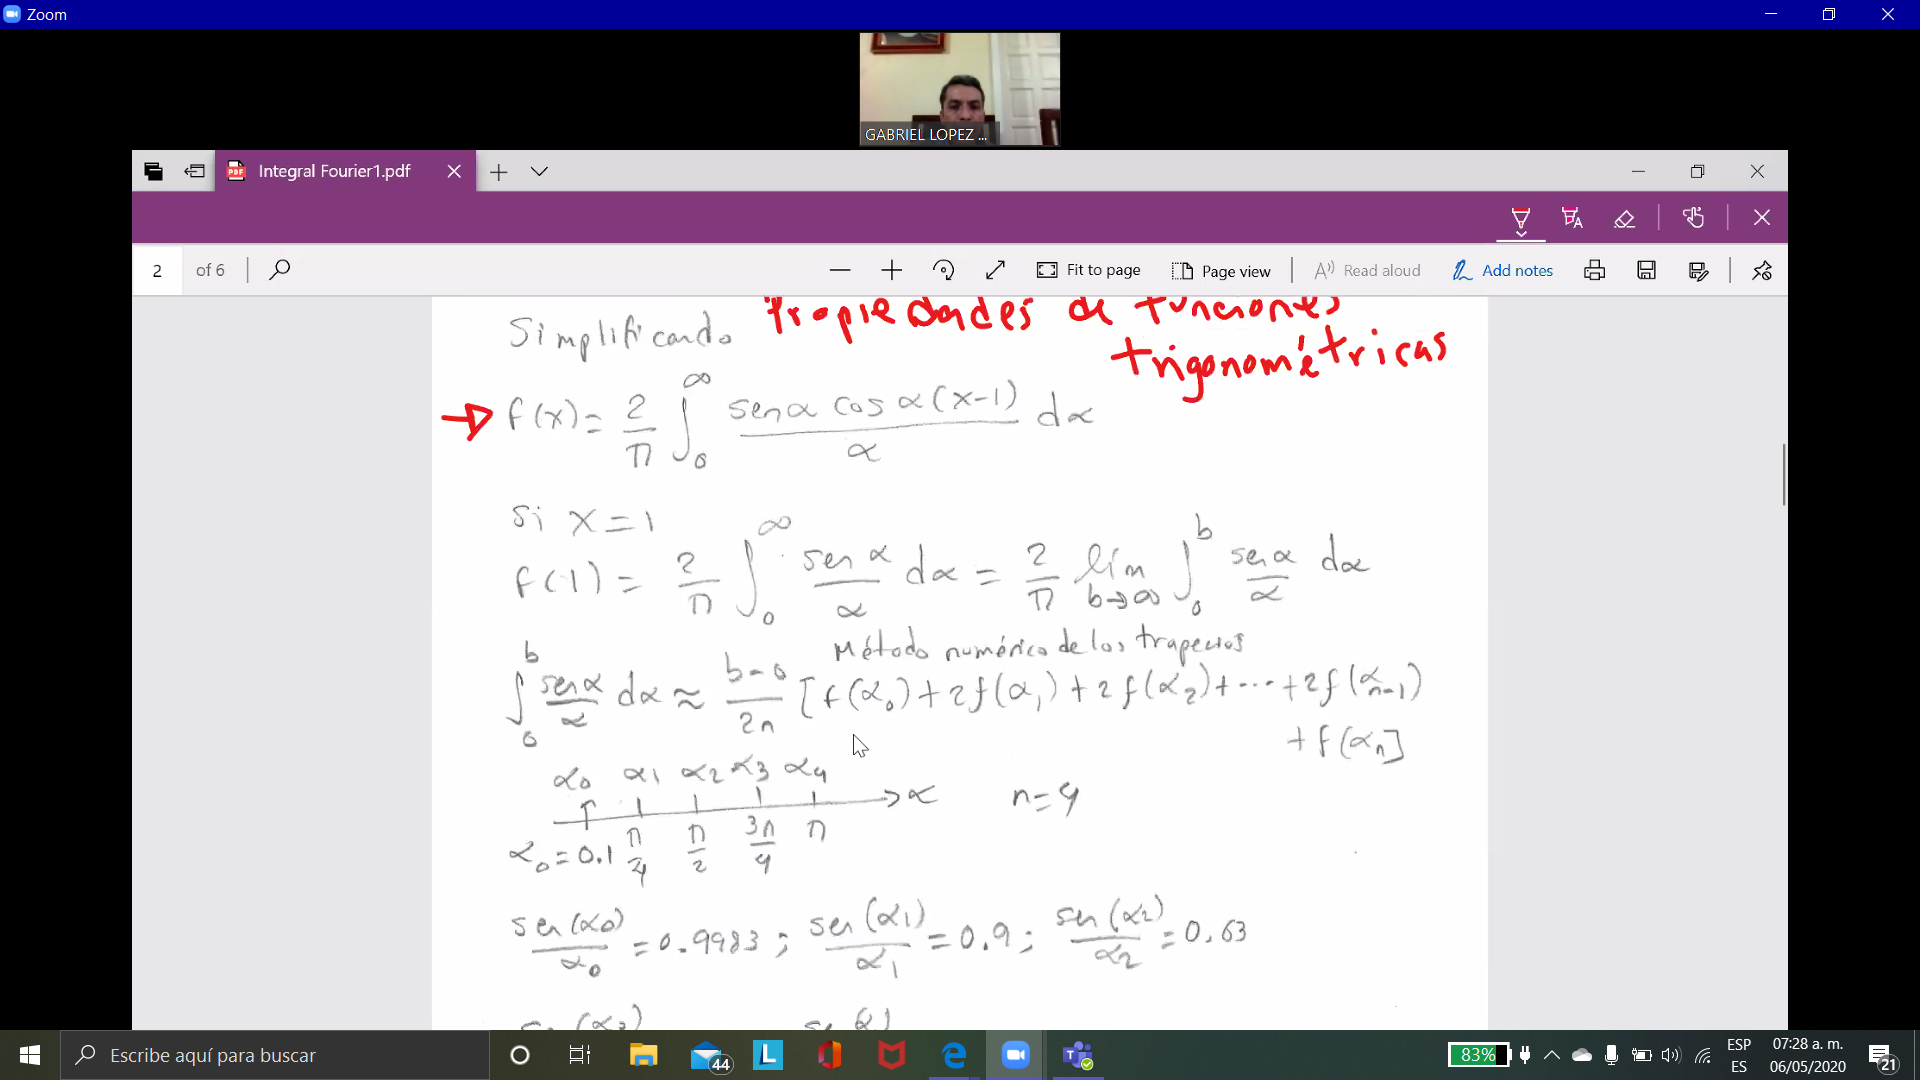 Zoom
GABRIEL LOPEZ ...
Integral Fourier1.pdf
2 of 6
Fit to page
Page view
Read aloud
Add notes
Propiedades de funciones
trigonométricas
Simplificando
f(x) = 2/π ∫₀^∞ senα cos α(x-1) / α dα
Si x = 1
f(1) = 2/π ∫₀^∞ sen α / α dα = 2/π lím b→∞ ∫₀^b senα / α dα
Método numérico de los trapecios
∫₀^b senα / α dα ≈ b-0 / 2n [f(α₀) + 2f(α₁) + 2f(α₂) + ... + 2f(αn-1)
+ f(αn]
α₀ α₁ α₂ α₃ α₄
α n=4
α₀ = 0.1 π/4 π/2 3π/4 π
sen(α₀) / α₀ = 0.9983 ; sen(α₁) / α₁ = 0.9 ; sen(α₂) / α₂ = 0.63
Escribe aquí para buscar
44
83%
ESP
ES
07:28 a. m.
06/05/2020
21